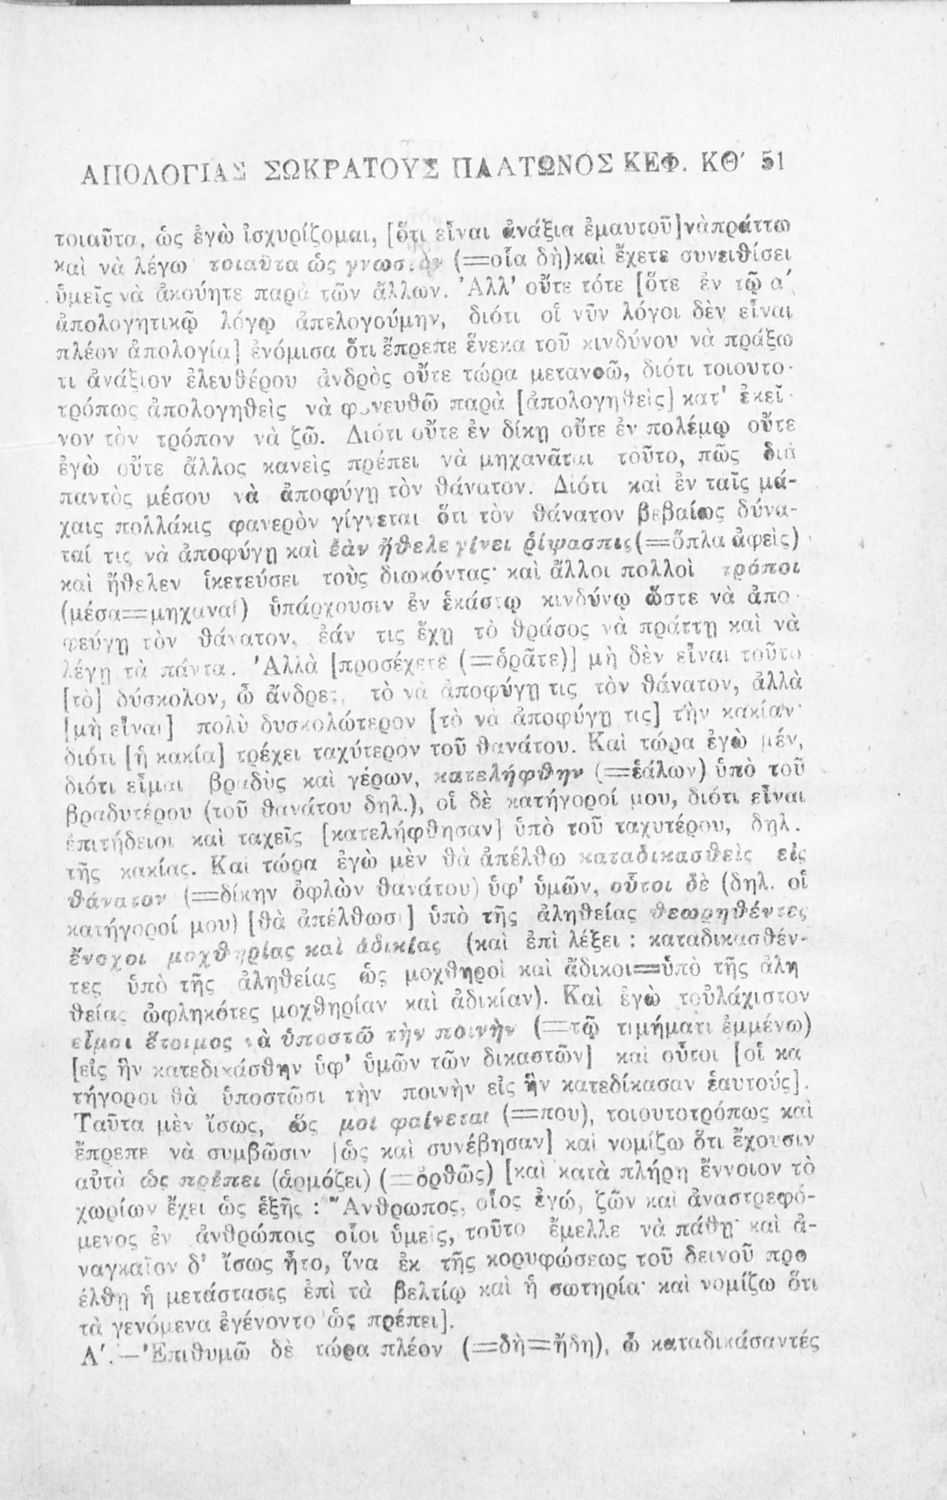 ΑΠΟΛΟΓΙΑΣ ΣΩΚΡΑΤΟΥΣ ΠΛΑΤΩΝΟΣ ΚΕΦ. ΚΘ′ 51
τοιαῦτα, ὡς ἐγὼ ἰσχυρίζομαι, [ὅτι εἶναι ἀνάξια ἐμαυτοῦ]νὰπράττω
καὶ νὰ λέγω τοιαῦτα ὡς (=οἷα δὴ)καὶ ἔχετε συνειθίσει
ὑμεῖς νὰ ἀκούητε παρὰ τῶν ἄλλων. Ἀλλ' οὔτε τότε [ὅτε ἐν τῷ α′
ἀπολογητικῷ λόγῳ ἀπελογούμην, διότι οἱ νῦν λόγοι δὲν εἶναι
πλέον ἀπολογία] ἐνόμισα ὅτι ἔπρεπε ἕνεκα τοῦ κινδύνου νὰ πράξω
τι ἀνάξιον ἐλευθέρου ἀνδρὸς οὔτε τώρα μετανοῶ, διότι τοιουτο-
τρόπως ἀπολογηθεὶς νὰ φονευθῶ παρὰ [ἀπολογηθεὶς] κατ' ἐκεῖ-
νον τὸν τρόπον νὰ ζῶ. Διότι οὔτε ἐν δίκῃ οὔτε ἐν πολέμῳ οὔτε
ἐγὼ οὔτε ἄλλος κανεὶς πρέπει νὰ μηχανᾶται τοῦτο, πῶς διὰ
παντὸς μέσου νὰ ἀποφύγῃ τὸν θάνατον. Διότι καὶ ἐν ταῖς μά-
χαις πολλάκις φανερὸν γίγνεται ὅτι τὸν θάνατον βεβαίως δύνα-
ταί τις νὰ ἀποφύγῃ καὶ ἐὰν ἤθελε γίνει ῥίψασπις(=ὅπλα ἀφεὶς)
καὶ ἤθελεν ἱκετεύσει τοὺς διωκόντας· καὶ ἄλλοι πολλοὶ τρόποι
(μέσα=μηχαναί) ὑπάρχουσιν ἐν ἑκάστῳ κινδύνῳ ὥστε νὰ ἀπο-
φεύγῃ τὸν θάνατον, ἐάν τις ἔχῃ τὸ θράσος νὰ πράττῃ καὶ νὰ
λέγῃ τὰ πάντα. Ἀλλὰ [προσέχετε (=ὁρᾶτε)] μὴ δὲν εἶναι τοῦτο
[τὸ] δύσκολον, ὦ ἄνδρες, τὸ νὰ ἀποφύγῃ τις τὸν θάνατον, ἀλλὰ
[μὴ εἶναι] πολὺ δυσκολώτερον [τὸ νὰ ἀποφύγῃ τις] τὴν κακίαν·
διότι [ἡ κακία] τρέχει ταχύτερον τοῦ θανάτου. Καὶ τώρα ἐγὼ μέν,
διότι εἶμαι βραδὺς καὶ γέρων, κατελήφθην (=ἑάλων) ὑπὸ τοῦ
βραδυτέρου (τοῦ θανάτου δηλ.), οἱ δὲ κατήγοροί μου, διότι εἶναι
ἐπιτήδειοι καὶ ταχεῖς [κατελήφθησαν] ὑπὸ τοῦ ταχυτέρου, δηλ.
τῆς κακίας. Και τώρα ἐγὼ μὲν θὰ ἀπέλθω καταδικασθεὶς εἰς
θάνατον (=δίκην ὀφλὼν θανάτου) ὑφ' ὑμῶν, οὗτοι δὲ (δηλ. οἱ
κατήγοροί μου) [θὰ ἀπέλθωσι] ὑπὸ τῆς ἀληθείας θεωρηθέντες
ἔνοχοι μοχθηρίας καὶ ἀδικίας (καὶ ἐπὶ λέξει : καταδικασθέν-
τες ὑπὸ τῆς ἀληθείας ὡς μοχθηροὶ καὶ ἄδικοι=ὑπὸ τῆς ἀλη
θείας ὠφληκότες μοχθηρίαν καὶ ἀδικίαν). Καὶ ἐγὼ τοὐλάχιστον
εἶμαι ἕτοιμος νὰ ὑποστῶ τὴν ποινὴν (=τῷ τιμήματι ἐμμένω)
[εἰς ἣν κατεδικάσθην ὑφ' ὑμῶν τῶν δικαστῶν] καὶ οὗτοι [οἱ κα
τήγοροι θὰ ὑποστῶσι τὴν ποινὴν εἰς ἣν κατεδίκασαν ἑαυτούς].
Ταῦτα μὲν ἴσως, ὥς μοι φαίνεται (=που), τοιουτοτρόπως καὶ
ἔπρεπε νὰ συμβῶσιν [ὡς καὶ συνέβησαν] καὶ νομίζω ὅτι ἔχουσιν
αὐτὰ ὡς πρέπει (ἁρμόζει) (=ὀρθῶς) [καὶ κατὰ πλήρη ἔννοιον τὸ
χωρίων ἔχει ὡς ἑξῆς : "Ἄνθρωπος, οἷος ἐγώ, ζῶν καὶ ἀναστρεφό-
μενος ἐν ἀνθρώποις οἷοι ὑμεῖς, τοῦτο ἔμελλε νὰ πάθῃ· καὶ ἀ-
ναγκαῖον δ' ἴσως ἦτο, ἵνα ἐκ τῆς κορυφώσεως τοῦ δεινοῦ προ
έλθῃ ἡ μετάστασις ἐπὶ τὰ βελτίω καὶ ἡ σωτηρία· καὶ νομίζω ὅτι
τὰ γενόμενα ἐγένοντο ὡς πρέπει].
Λ′.—Ἐπιθυμῶ δὲ τώρα πλέον (=δὴ=ἤδη), ὦ καταδικάσαντές